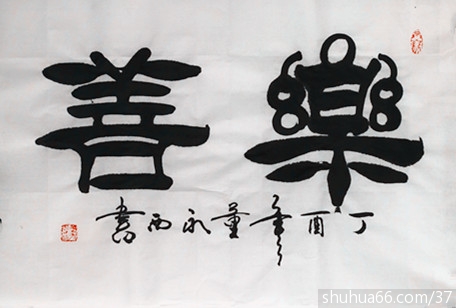 樂善
丁酉年董永西書
shuhua66.com/37